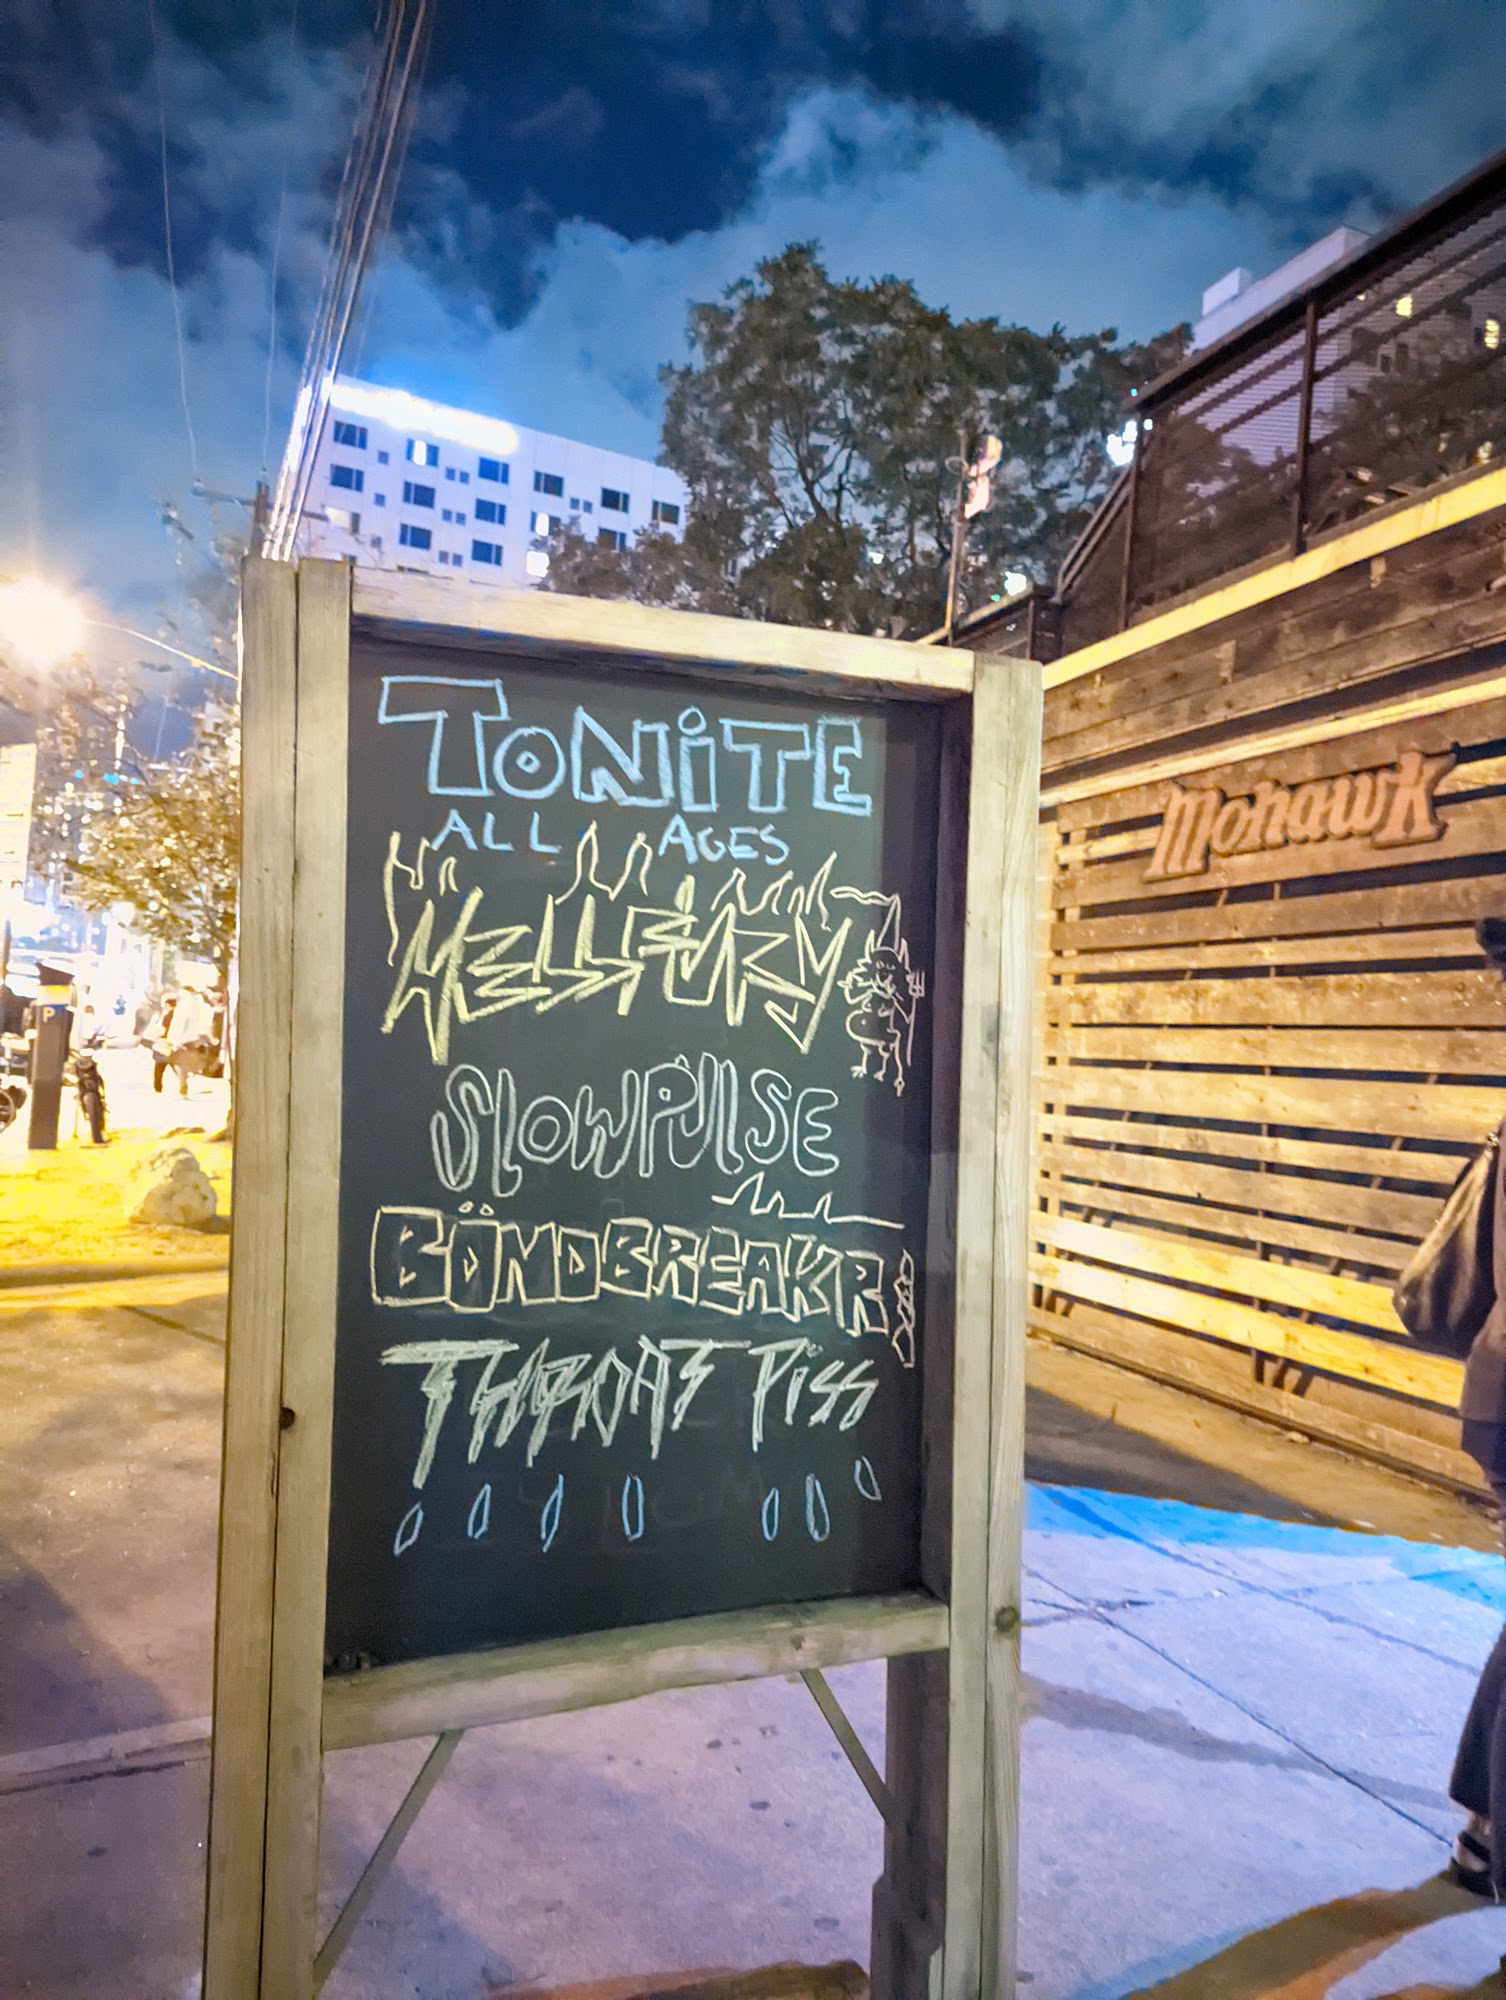 TONiTE
ALL AGES
HELLFÜRY
SLOWPULSE
BÖNDBREAKR
THROAT PiSS
Mohawk
P